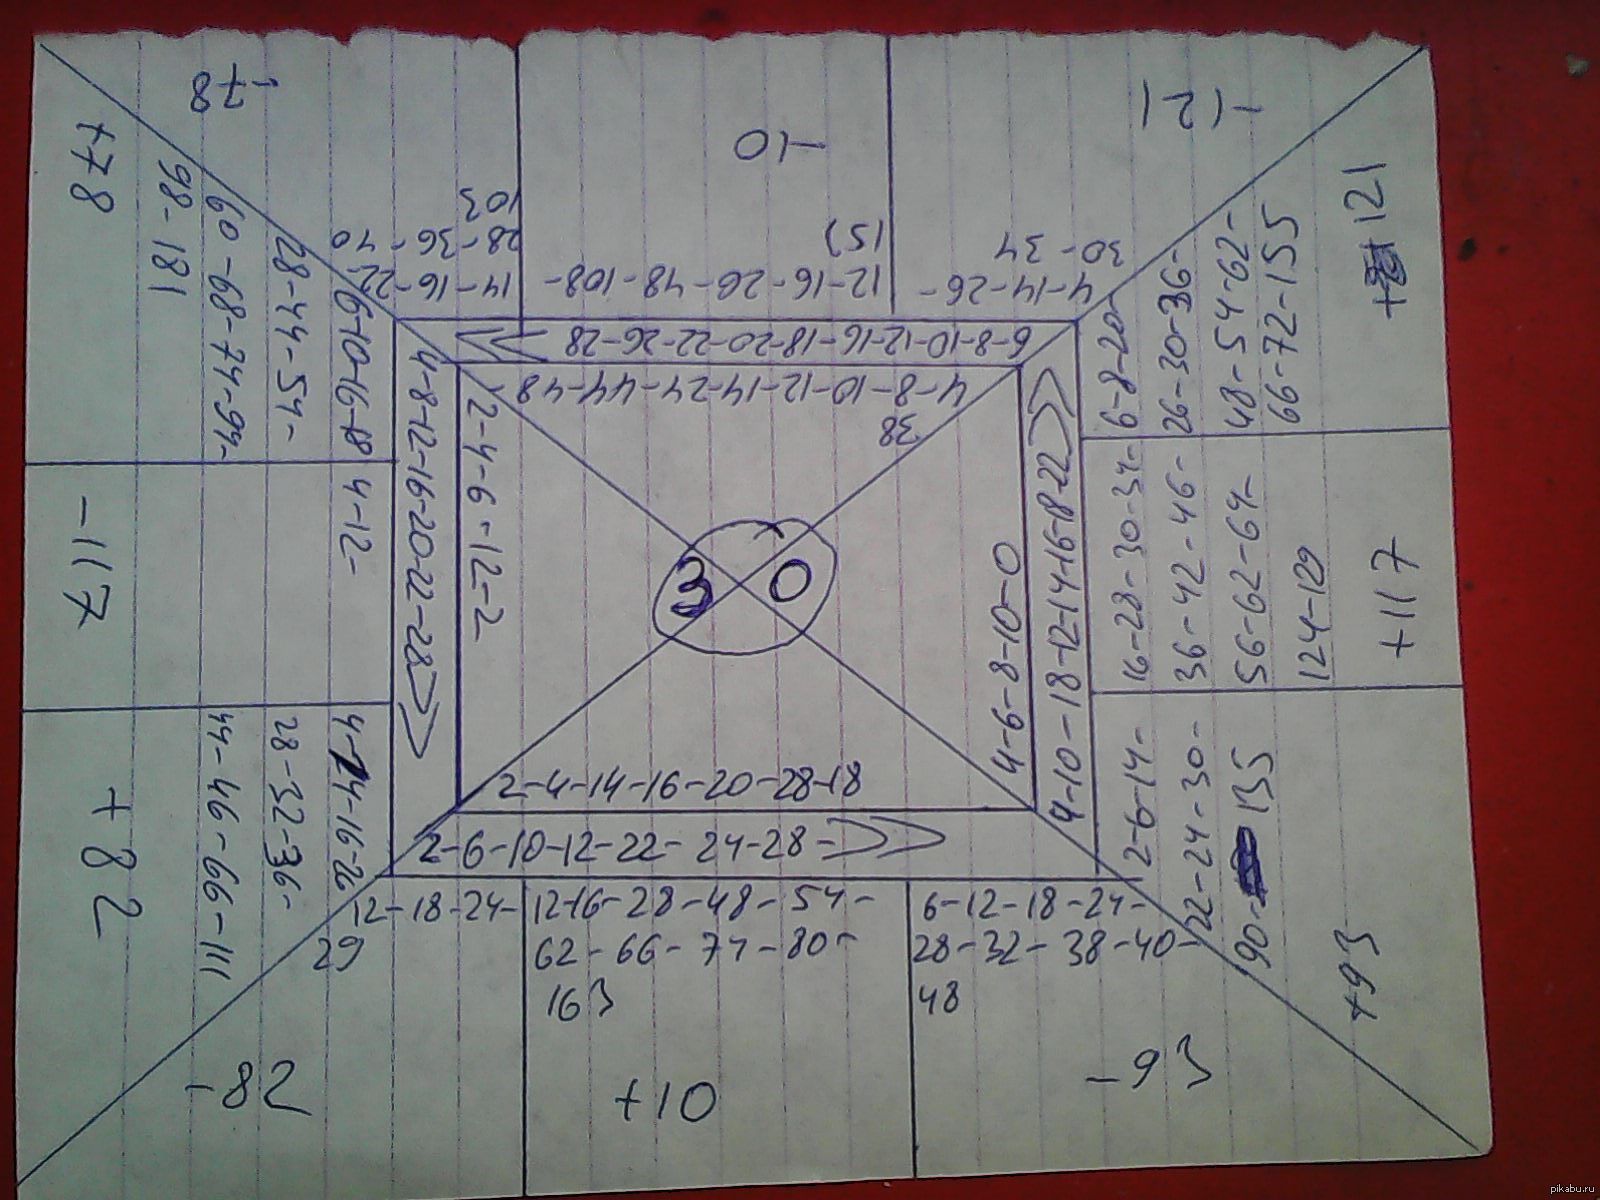 -78
-10
-121
14-16-22
28-36-40
103
12-16-26-48-108-
151
4-14-26-
30-34
6-8-10-12-16-18-20-22-26-28 >>
4-8-10-12-14-24-44-48
38
+78
6-10-16-18
28-44-54-
60-68-74-94-
98-181
-117
4-12-
+82
4-14-16-26
28-32-36-
44-46-66-111
4-8-12-16-20-22-28 >>
2-4-6-12-2
3 0
4-6-8-10-0
4-10-18-12-14-16-18-22 >>
6-8-20-
26-30-36-
48-54-62-
66-72-155
+121
16-28-30-34-
36-42-46-
56-62-64-
124-129
+117
2-6-14-
22-24-30-
90- 135
+93
2-4-14-16-20-28-18
2-6-10-12-22-24-28- >>
12-18-24-
29
-82
12-16-28-48-54-
62-66-74-80-
163
+10
6-12-18-24-
28-32-38-40-
48
-93
pikabu.ru